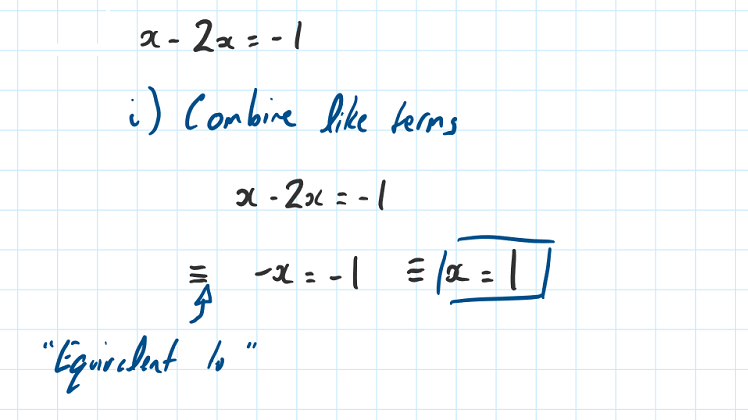 x - 2x = -1
i) Combine like terms
x - 2x = -1
≡ -x = -1 ≡ x = 1
"Equivalent to"